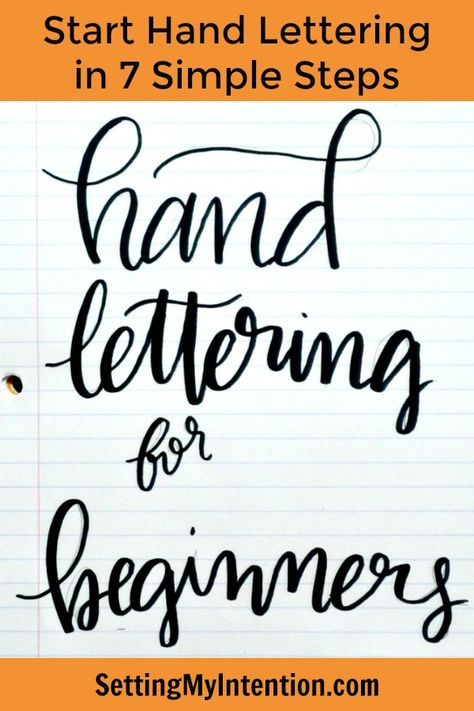 Start Hand Lettering
in 7 Simple Steps
hand
lettering
for
beginners
SettingMyIntention.com